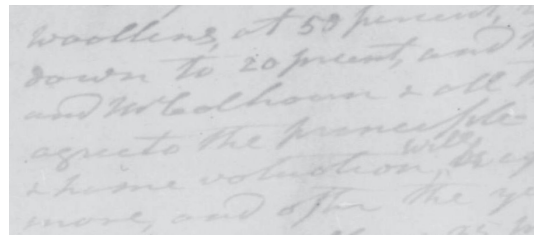 woollens, at 50 percent,
down to 20 prcent, and
and Mr Calhoun & all
agree to the principle
& home valuation, will be
more, and after the